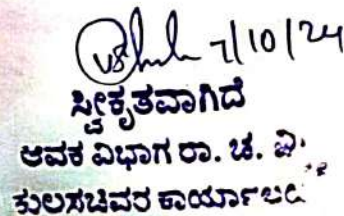 7/10/24
ಸ್ವೀಕೃತವಾಗಿದೆ
ಆವಕ ವಿಭಾಗ ರಾ. ಚ. ವಿ.
ಕುಲಸಚಿವರ ಕಾರ್ಯಾಲಯ